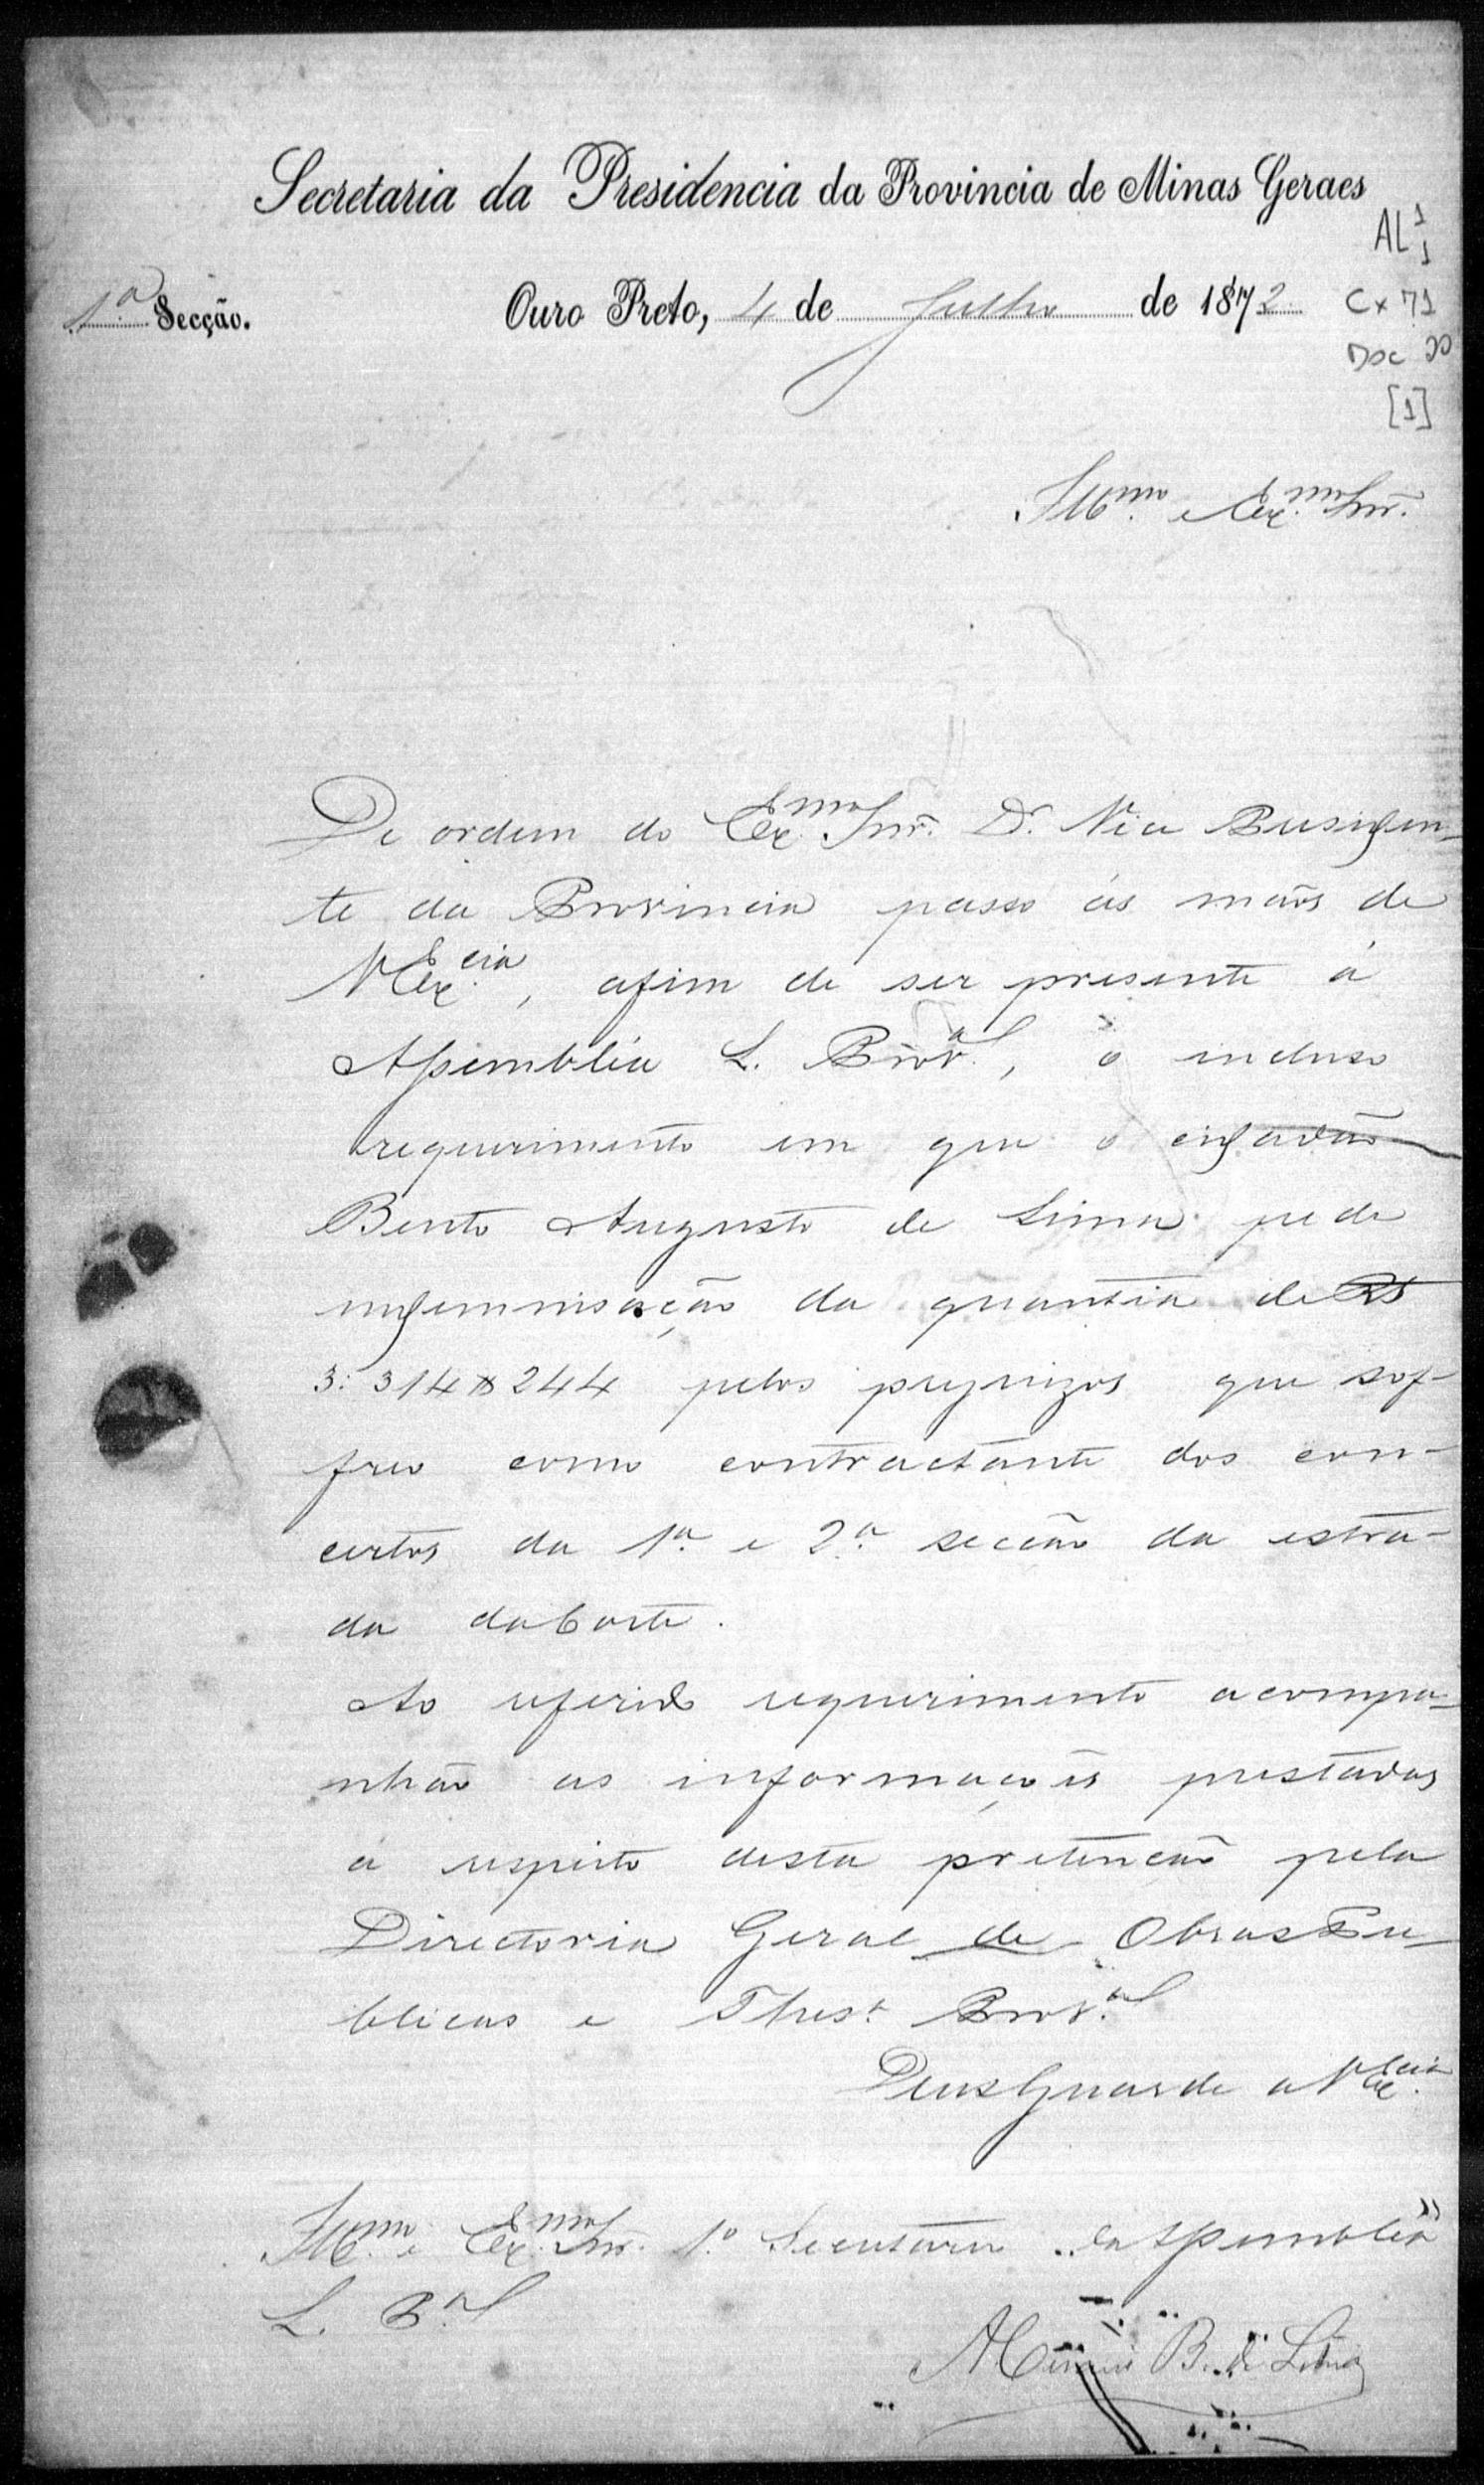 Secretaria da Presidencia da Provincia de Minas Geraes
AL 1
1
1.ª Secção.
Ouro Preto, 4 de Julho de 1872
Cx 71
Doc 20
[1]
Ill.mo e Ex.mo Snr.
De ordem do Ex.mo Snr. Dr. Vice Presiden-
te da Provincia passo ás mãos de
V Ex.cia, afim de ser presente á
Assembléa L. Prov.al, o incluso
requerimento em que o cidadão
Bento Augusto de Lima pede
indemnisação da quantia de Rs
3:314$244 pelos prejuizos que sof-
freo como contractante dos con-
certos da 1ª e 2ª secção da estra-
da da Corte.
Ao referido requerimento acompa-
nhão as informações prestadas
a respeito desta pretenção pela
Directoria Geral de Obras Pu-
blicas e Thes.ª Prov.al
Deus Guarde a V Ex.cia
Ill.mo e Ex.mo Snr. 1.º Secretario da Assembléa
L. P.al
B. de Lima